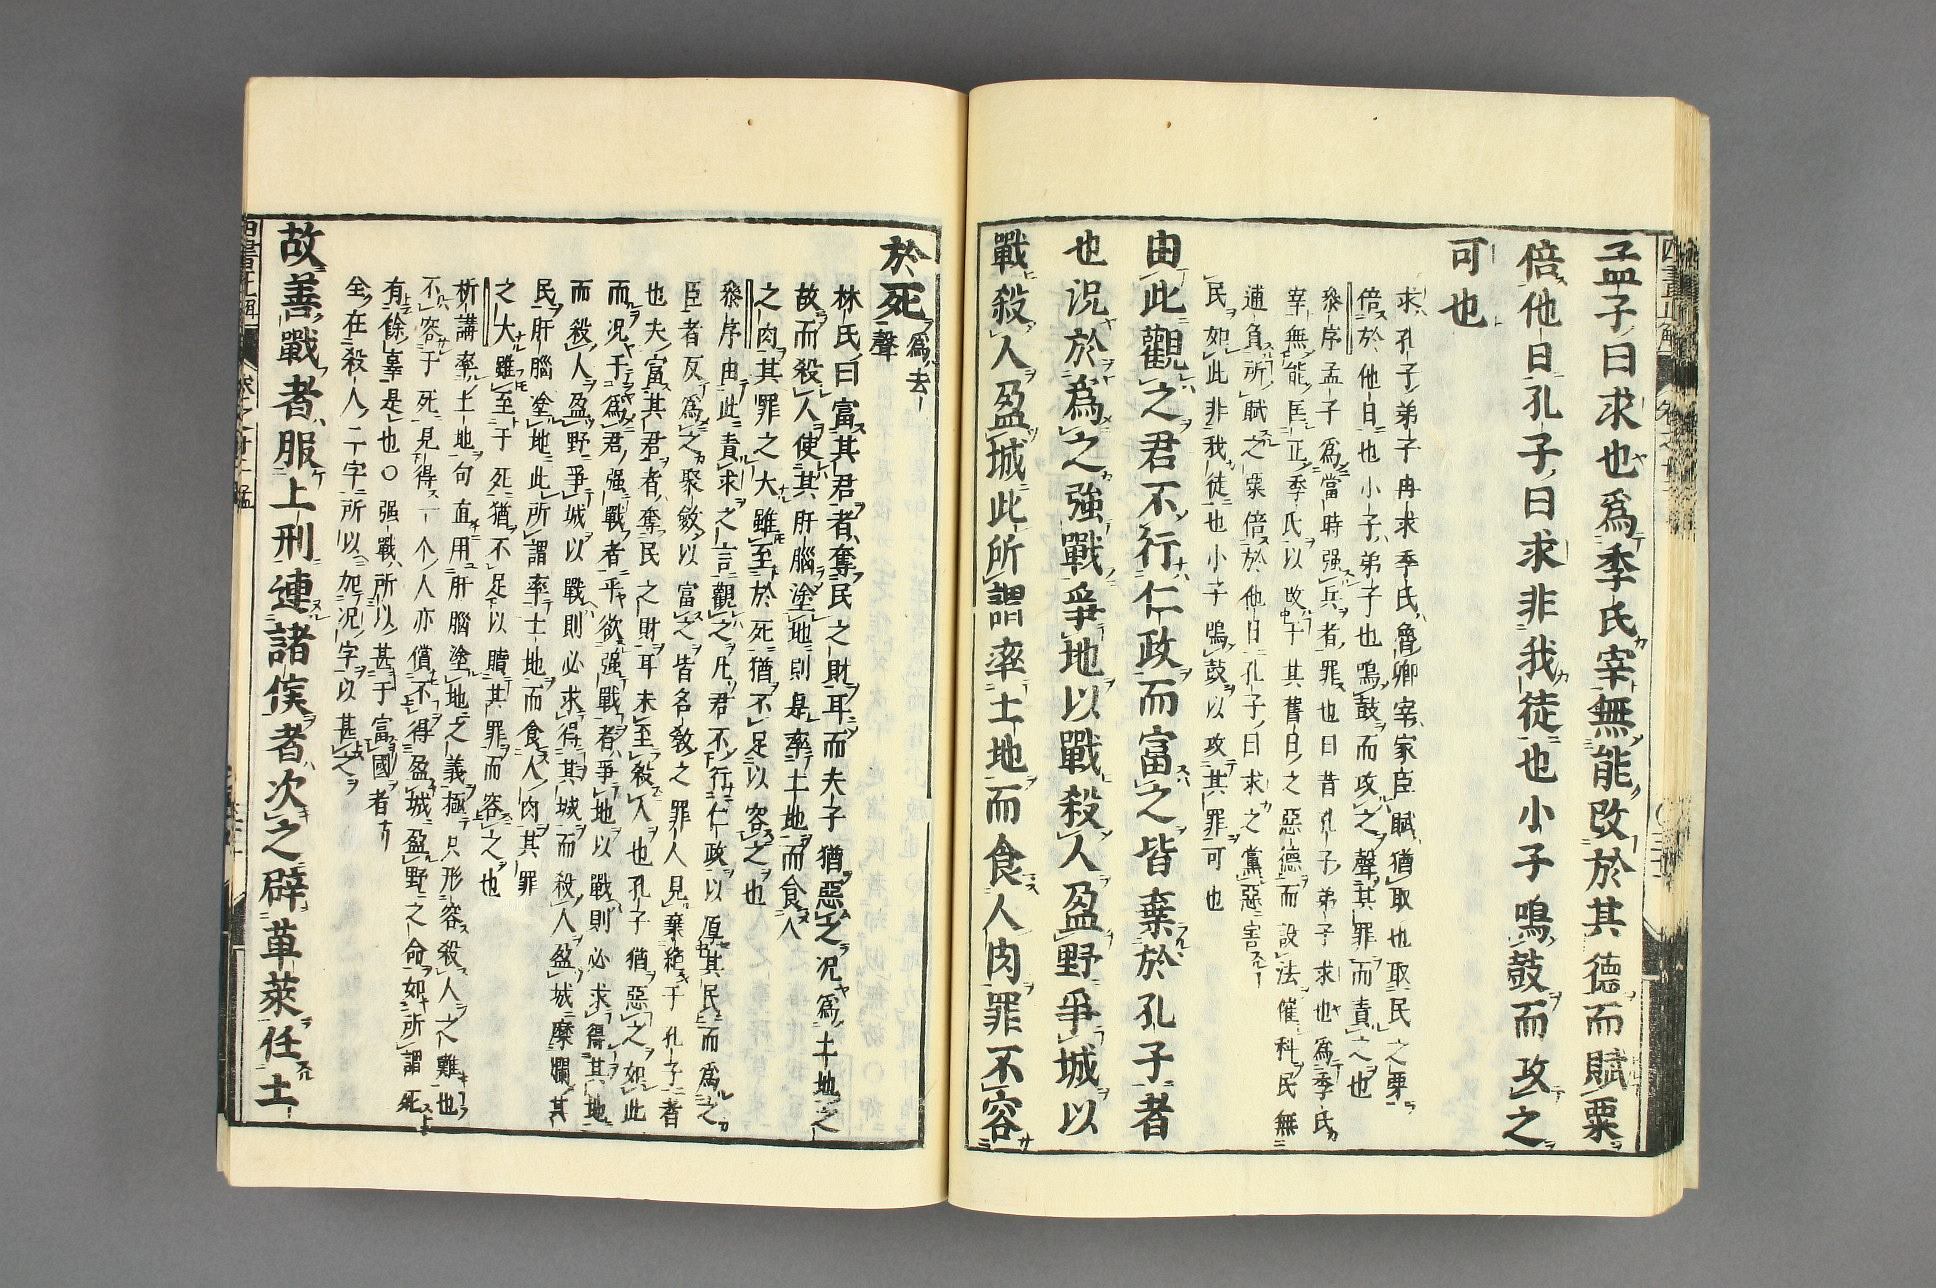 孟子曰求也爲季氏宰無能改於其德而賦粟
倍他日孔子曰求非我徒也小子鳴鼓而攻之
可也
求孔子弟子冉求季氏魯卿宰家臣賦猶取也取民之粟
倍於他日也小子弟子也鳴鼓而攻之聲其罪而責之也
叅序孟子爲當時强兵者罪也曰昔孔子弟子求也為季氏
宰無能匡正季氏以改于其舊日之惡德而設法催科民無
逋負所賦之粟倍於他日孔子曰求之黨惡害
民如此非我徒也小子鳴鼓以攻其罪可也
由此觀之君不行仁政而富之皆棄於孔子者
也況於爲之強戰爭地以戰殺人盈野爭城以
戰殺人盈城此所謂率土地而食人肉罪不容
於死
爲去
聲
林氏曰富其君者奪民之財耳而夫子猶惡之况爲土地之
故而殺人使其肝腦塗地則是率土地而食人
之肉其罪之大雖至於死猶不足以容之也
叅序由此責求之言觀之凡君不行仁政以厚其民而爲之
臣者反爲之聚斂以富之皆名敎之罪人見棄絶于孔子者
也夫富其君者奪民之財耳未至殺人也孔子猶惡之如此
而况于爲君强戰者乎欲强戰者爭地以戰則必求得其地
而殺人盈野爭城以戰則必求得其城而殺人盈城糜爛其
民肝腦塗地此所謂率土地而食人肉其罪
之大雖至于死猶不足以贖其罪而容之也
析講率土地句直用肝腦塗地之義極只形容殺人之難也
不容于死見得一个人亦償不得盈城盈野之命如所謂死
有餘辜是也〇强戰所以甚于富國者
全在殺人二字所以加况字以甚之
故善戰者服上刑連諸侯者次之辟草萊任土